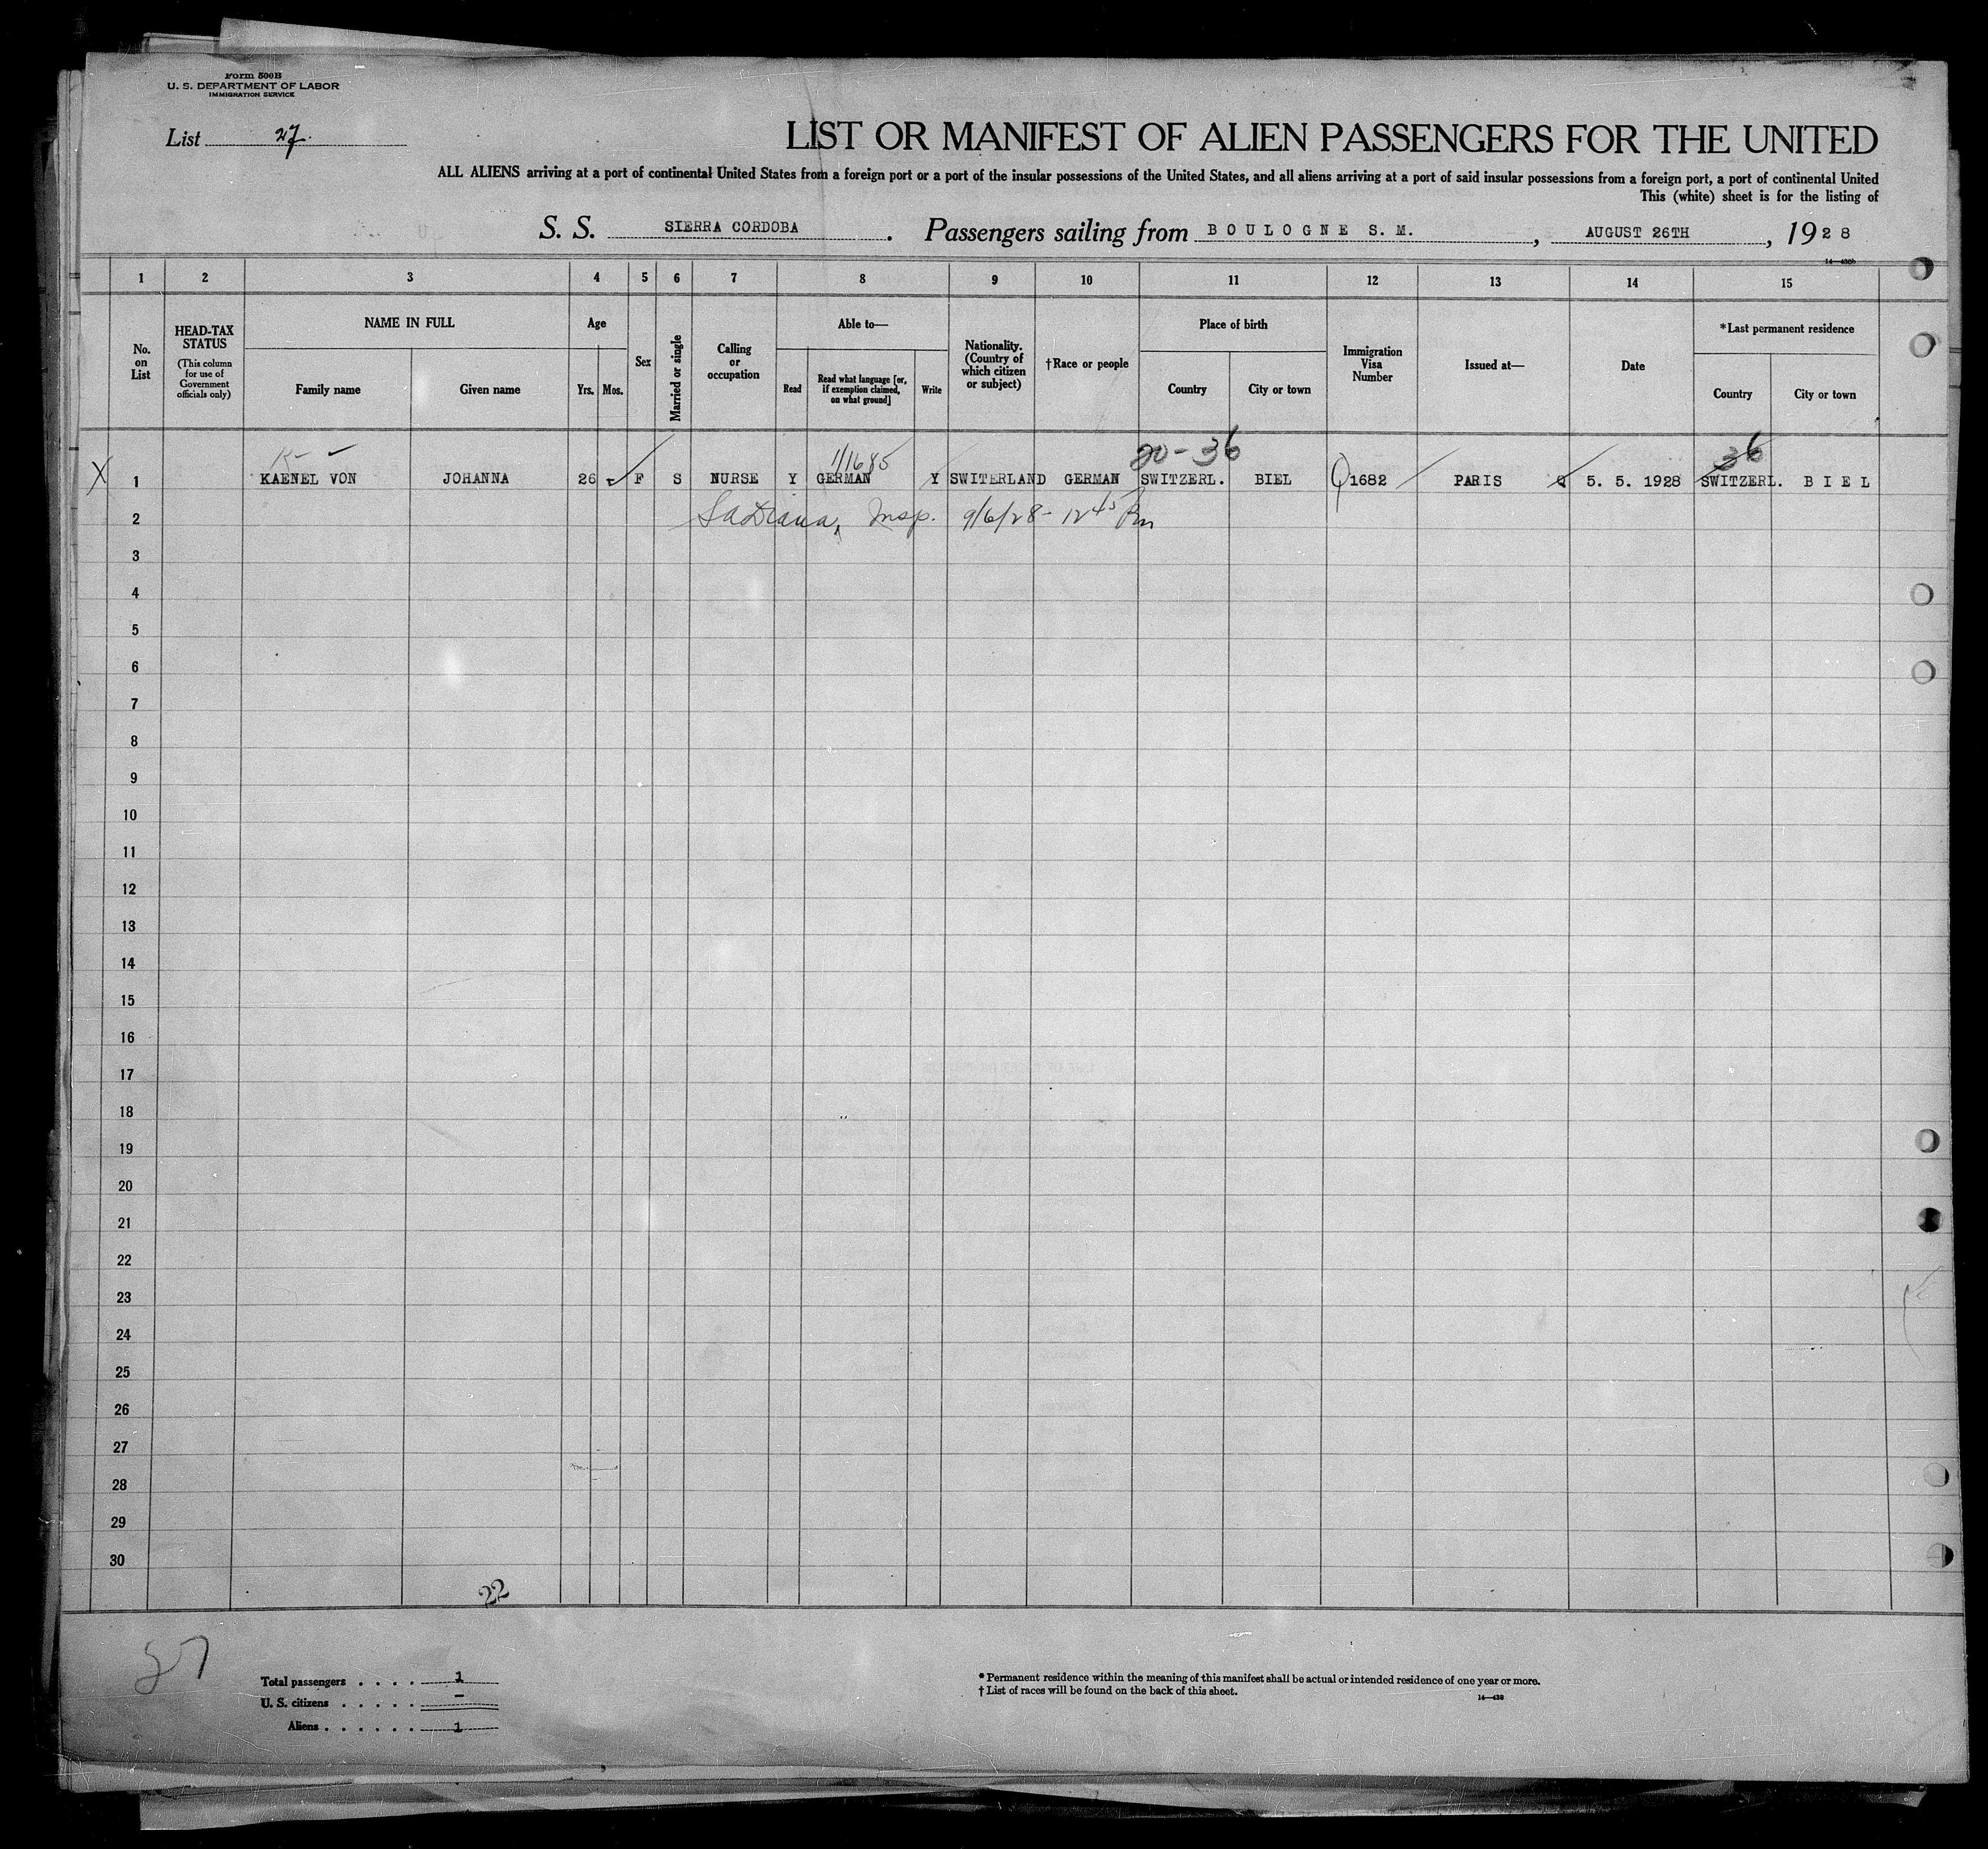 Form 500B
U. S. DEPARTMENT OF LABOR
IMMIGRATION SERVICE
List 27.
LIST OR MANIFEST OF ALIEN PASSENGERS FOR THE UNITED
ALL ALIENS arriving at a port of continental United States from a foreign port or a port of the insular possessions of the United States, and all aliens arriving at a port of said insular possessions from a foreign port, a port of continental United
This (white) sheet is for the listing of
S. S. SIERRA CORDOBA . Passengers sailing from BOULOGNE S. M. , AUGUST 26TH , 1928
14—438b
1 2 3 4 5 6 7 8 9 10 11 12 13 14 15
No. on List
HEAD-TAX STATUS
(This column for use of Government officials only)
NAME IN FULL
Family name
Given name
Age
Yrs.
Mos.
Sex
Married or single
Calling or occupation
Able to—
Read
Read what language [or, if exemption claimed, on what ground]
Write
Nationality. (Country of which citizen or subject)
†Race or people
Place of birth
Country
City or town
Immigration Visa Number
Issued at—
Date
*Last permanent residence
Country
City or town
K
1/1685
20-36
36
X 1 KAENEL VON JOHANNA 26 F S NURSE Y GERMAN Y SWITERLAND GERMAN SWITZERL. BIEL Q 1682 PARIS 5. 5. 1928 SWITZERL. BIEL
2 Insp. 9/6/28 - 12 45 Pm
3
4
5
6
7
8
9
10
11
12
13
14
15
16
17
18
19
20
21
22
23
24
25
26
27
28
29
30
22
27
Total passengers . . . . 1
U. S. citizens . . . . . –
Aliens . . . . . . 1
* Permanent residence within the meaning of this manifest shall be actual or intended residence of one year or more.
† List of races will be found on the back of this sheet.
14—438